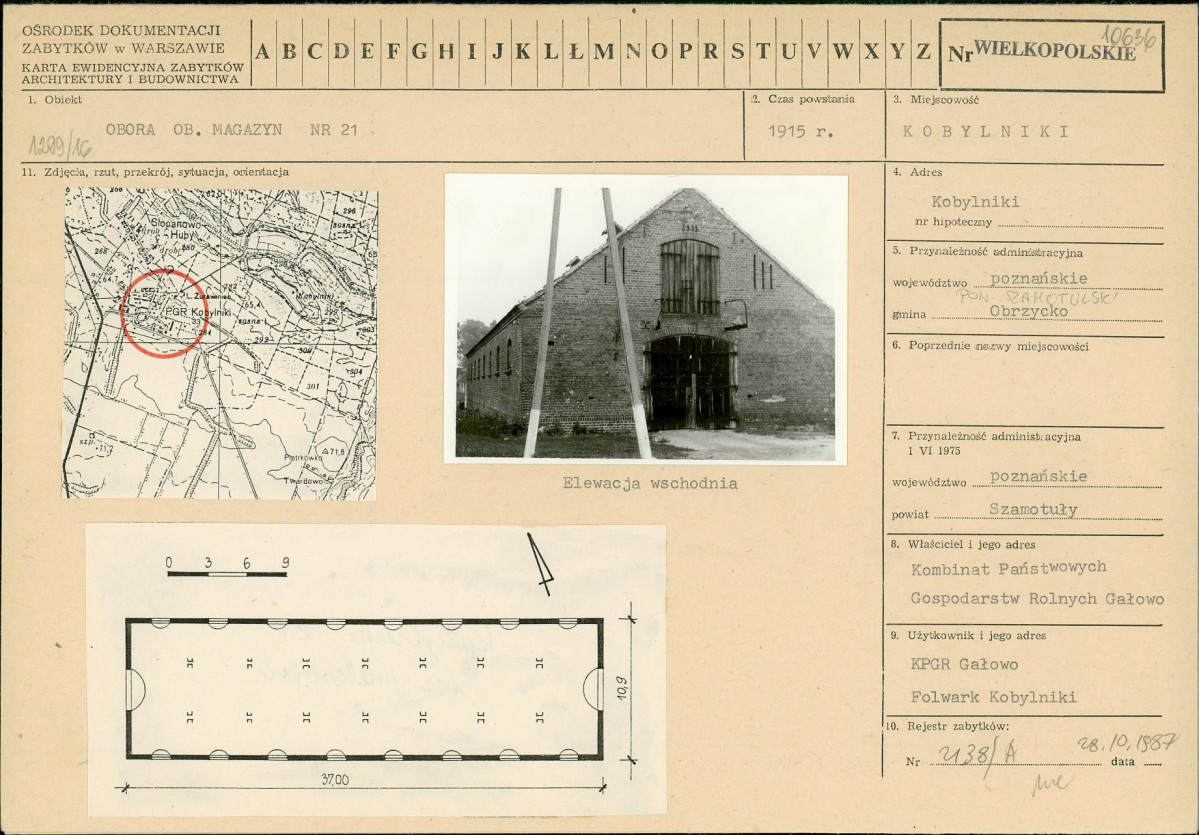 OŚRODEK DOKUMENTACJI
ZABYTKÓW w WARSZAWIE
KARTA EWIDENCYJNA ZABYTKÓW
ARCHITEKTURY I BUDOWNICTWA
A B C D E F G H I J K L Ł M N O P R S T U V W X Y Z
Nr WIELKOPOLSKIE
10636
1. Obiekt
OBORA OB. MAGAZYN NR 21
1289/16
2. Czas powstania
1915 r.
3. Miejscowość
KOBYLNIKI
11. Zdjęcia, rzut, przekrój, sytuacja, orientacja
296
sosna
Słopanowo-
Huby
drob
280
268
64,7
282
65,4
Kobylniki
PGR Kobylniki
sosna
298
303
284
292
300
304
301
szp.
71,8
Piotrkówko
Twardowo
1915
Elewacja wschodnia
0 3 6 9
10,9
37,00
4. Adres
Kobylniki
nr hipoteczny
5. Przynależność administracyjna
województwo poznańskie
POW. SZAMOTULSKI
gmina Obrzycko
6. Poprzednie nazwy miejscowości
7. Przynależność administracyjna
1 VI 1975
województwo poznańskie
powiat Szamotuły
8. Właściciel i jego adres
Kombinat Państwowych
Gospodarstw Rolnych Gałowo
9. Użytkownik i jego adres
KPGR Gałowo
Folwark Kobylniki
10. Rejestr zabytków:
Nr 2138/A data 28.10.1987